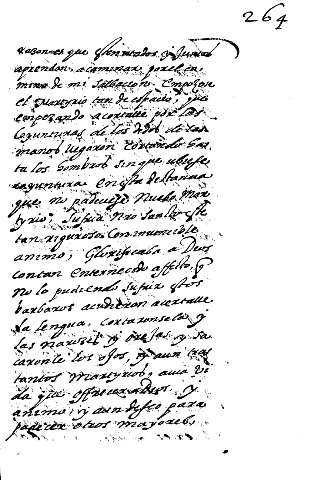 264
razones que sus mitados, y Juntos
aprendan, a caminar por el ca
mino de mi Salbacion. Empezose
el Martyrio tan de espacio, que
empezando a cortalle por las
coyunturas de los dedos de las
manos llegaron cortando has
ta los hombros sin que ubiese
coyuntura en esta distancia
que no padeciese Nuebo Mar
tyrio. Sufria Nro Santo este
tan riguroso con invencible
animo; Glorificaba a Dios
con tan enternecido affecto, q
no lo pudiendo Sufrir estos
barbaros acudieron a cortalle
la lengua. Cortaronsela y
las narizes y orejas y sa
caronle los ojos, y aun tras
tantos Martyrios, avia vi
da que offrecer a Dios y
animo, y aun deseo para
padecer otros mayores.